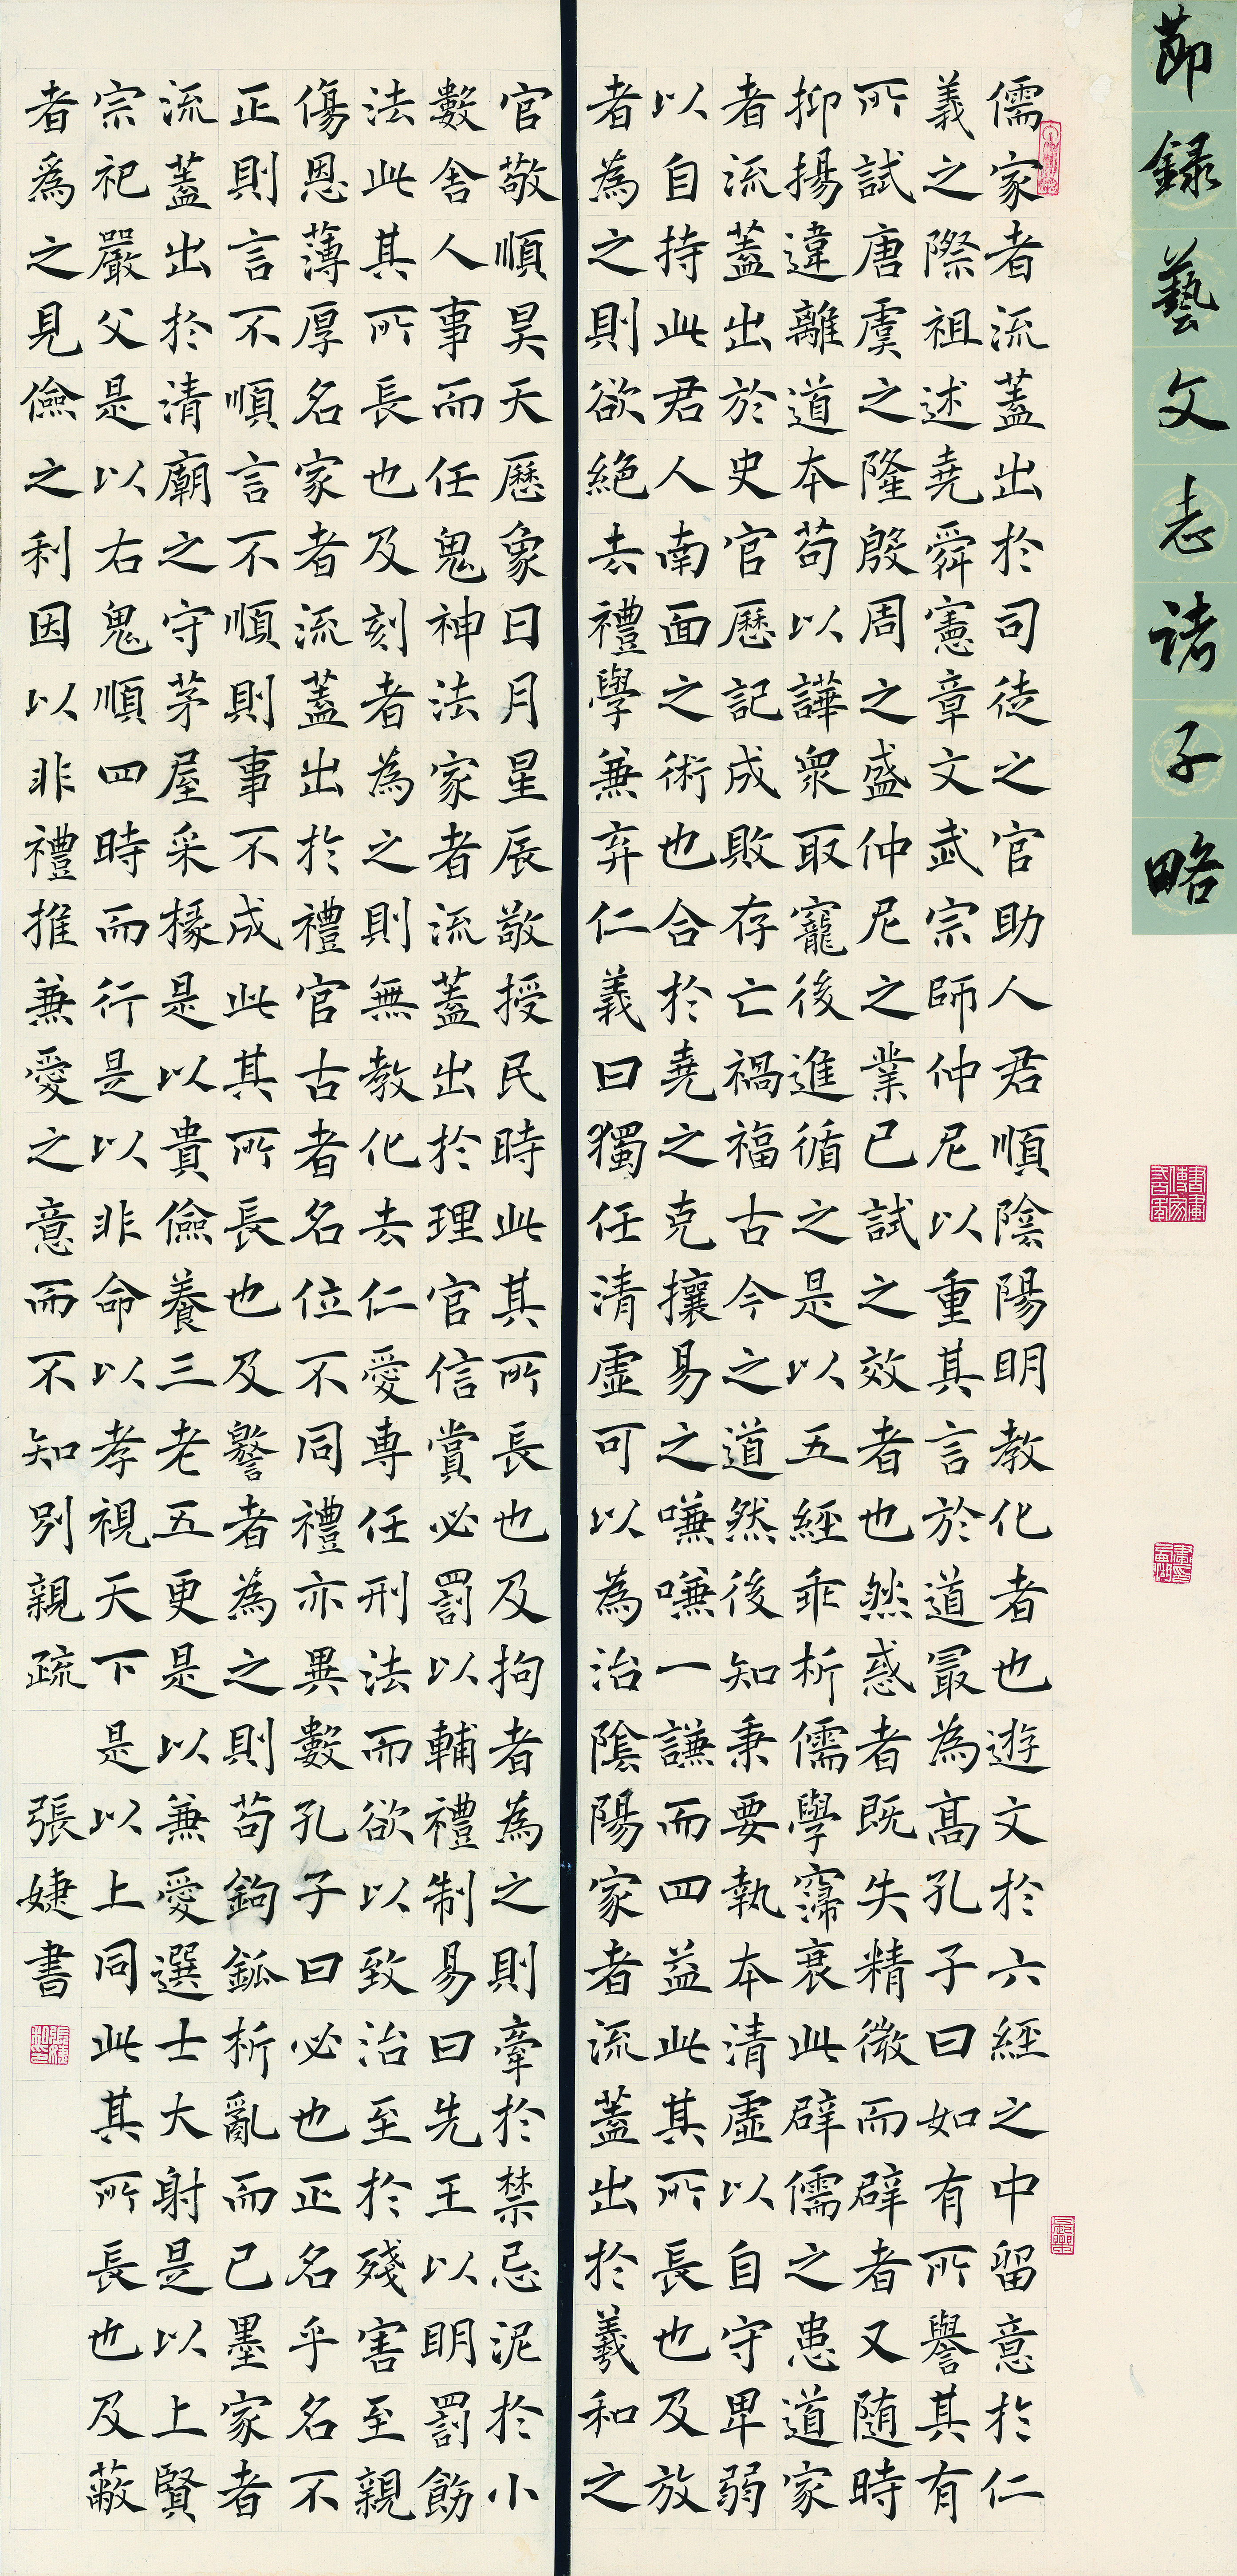 節録藝文志諸子略
儒家者流蓋出於司徒之官助人君順陰陽明教化者也遊文於六經之中留意於仁
義之際祖述堯舜憲章文武宗師仲尼以重其言於道冣為高孔子曰如有所譽其有
所試唐虞之隆殷周之盛仲尼之業已試之效者也然惑者既失精微而辟者又随時
抑揚違離道本苟以譁衆取寵後進循之是以五經乖析儒學寖衰此辟儒之患道家
者流蓋出於史官歷記成敗存亡禍福古今之道然後知秉要執本清虛以自守卑弱
以自持此君人南面之術也合於堯之克攘易之嗛嗛一謙而四益此其所長也及放
者為之則欲絕去禮學兼弃仁義曰獨任清虛可以為治陰陽家者流蓋出於羲和之
官敬順昊天歷象日月星辰敬授民時此其所長也及拘者為之則牽於禁忌泥於小
數舍人事而任鬼神法家者流蓋出於理官信賞必罰以輔禮制易曰先王以明罰飭
法此其所長也及刻者為之則無教化去仁愛専任刑法而欲以致治至於殘害至親
傷恩薄厚名家者流蓋出於禮官古者名位不同禮亦異數孔子曰必也正名乎名不
正則言不順言不順則事不成此其所長也及警者為之則苟鉤鈲析亂而已墨家者
流蓋出於清廟之守茅屋采椽是以貴儉養三老五更是以兼愛選士大射是以上賢
宗祀嚴父是以右鬼順四時而行是以非命以孝視天下是以上同此其所長也及蔽
者爲之見儉之利因以非禮推兼愛之意而不知別親疏 張婕書